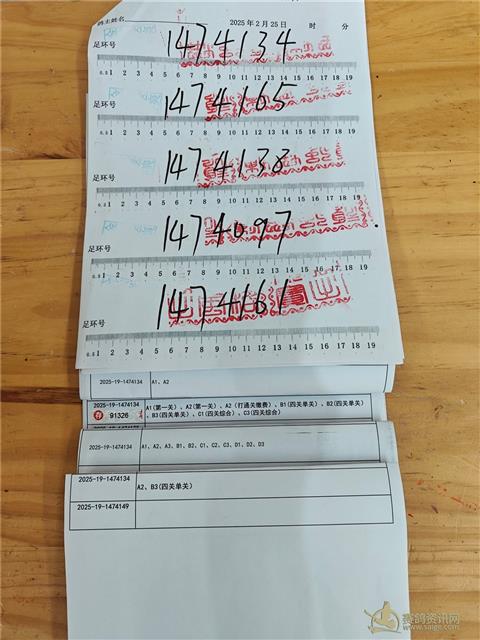 鸽主姓名 2025年2月25日 时 分
足环号 1474134
0.5 1 2 3 4 5 6 7 8 9 10 11 12 13 14 15 16 17 18 19
足环号 1474165
0.5 1 2 3 4 5 6 7 8 9 10 11 12 13 14 15 16 17 18 19
足环号 1474133
0.5 1 2 3 4 5 6 7 8 9 10 11 12 13 14 15 16 17 18 19
足环号 1474097
0.5 1 2 3 4 5 6 7 8 9 10 11 12 13 14 15 16 17 18 19
足环号 1474161
0.5 1 2 3 4 5 6 7 8 9 10 11 12 13 14 15 16 17 18 19
2025-19-1474134 A1、A2
2025-19-1474134 A1(第一关)、A2(第一关)、A2(打通关缴费)、B1(四关单关)、B2(四关单关)
91326 、B3(四关单关)、C1(四关综合)、C3(四关综合)
2025-19-1474134 A1、A2、A3、B1、B2、C1、C2、C3、D1、D2、D3
2025-19-1474134 A2、B3(四关单关)
2025-19-1474149
赛鸽资讯网
www.saige.com